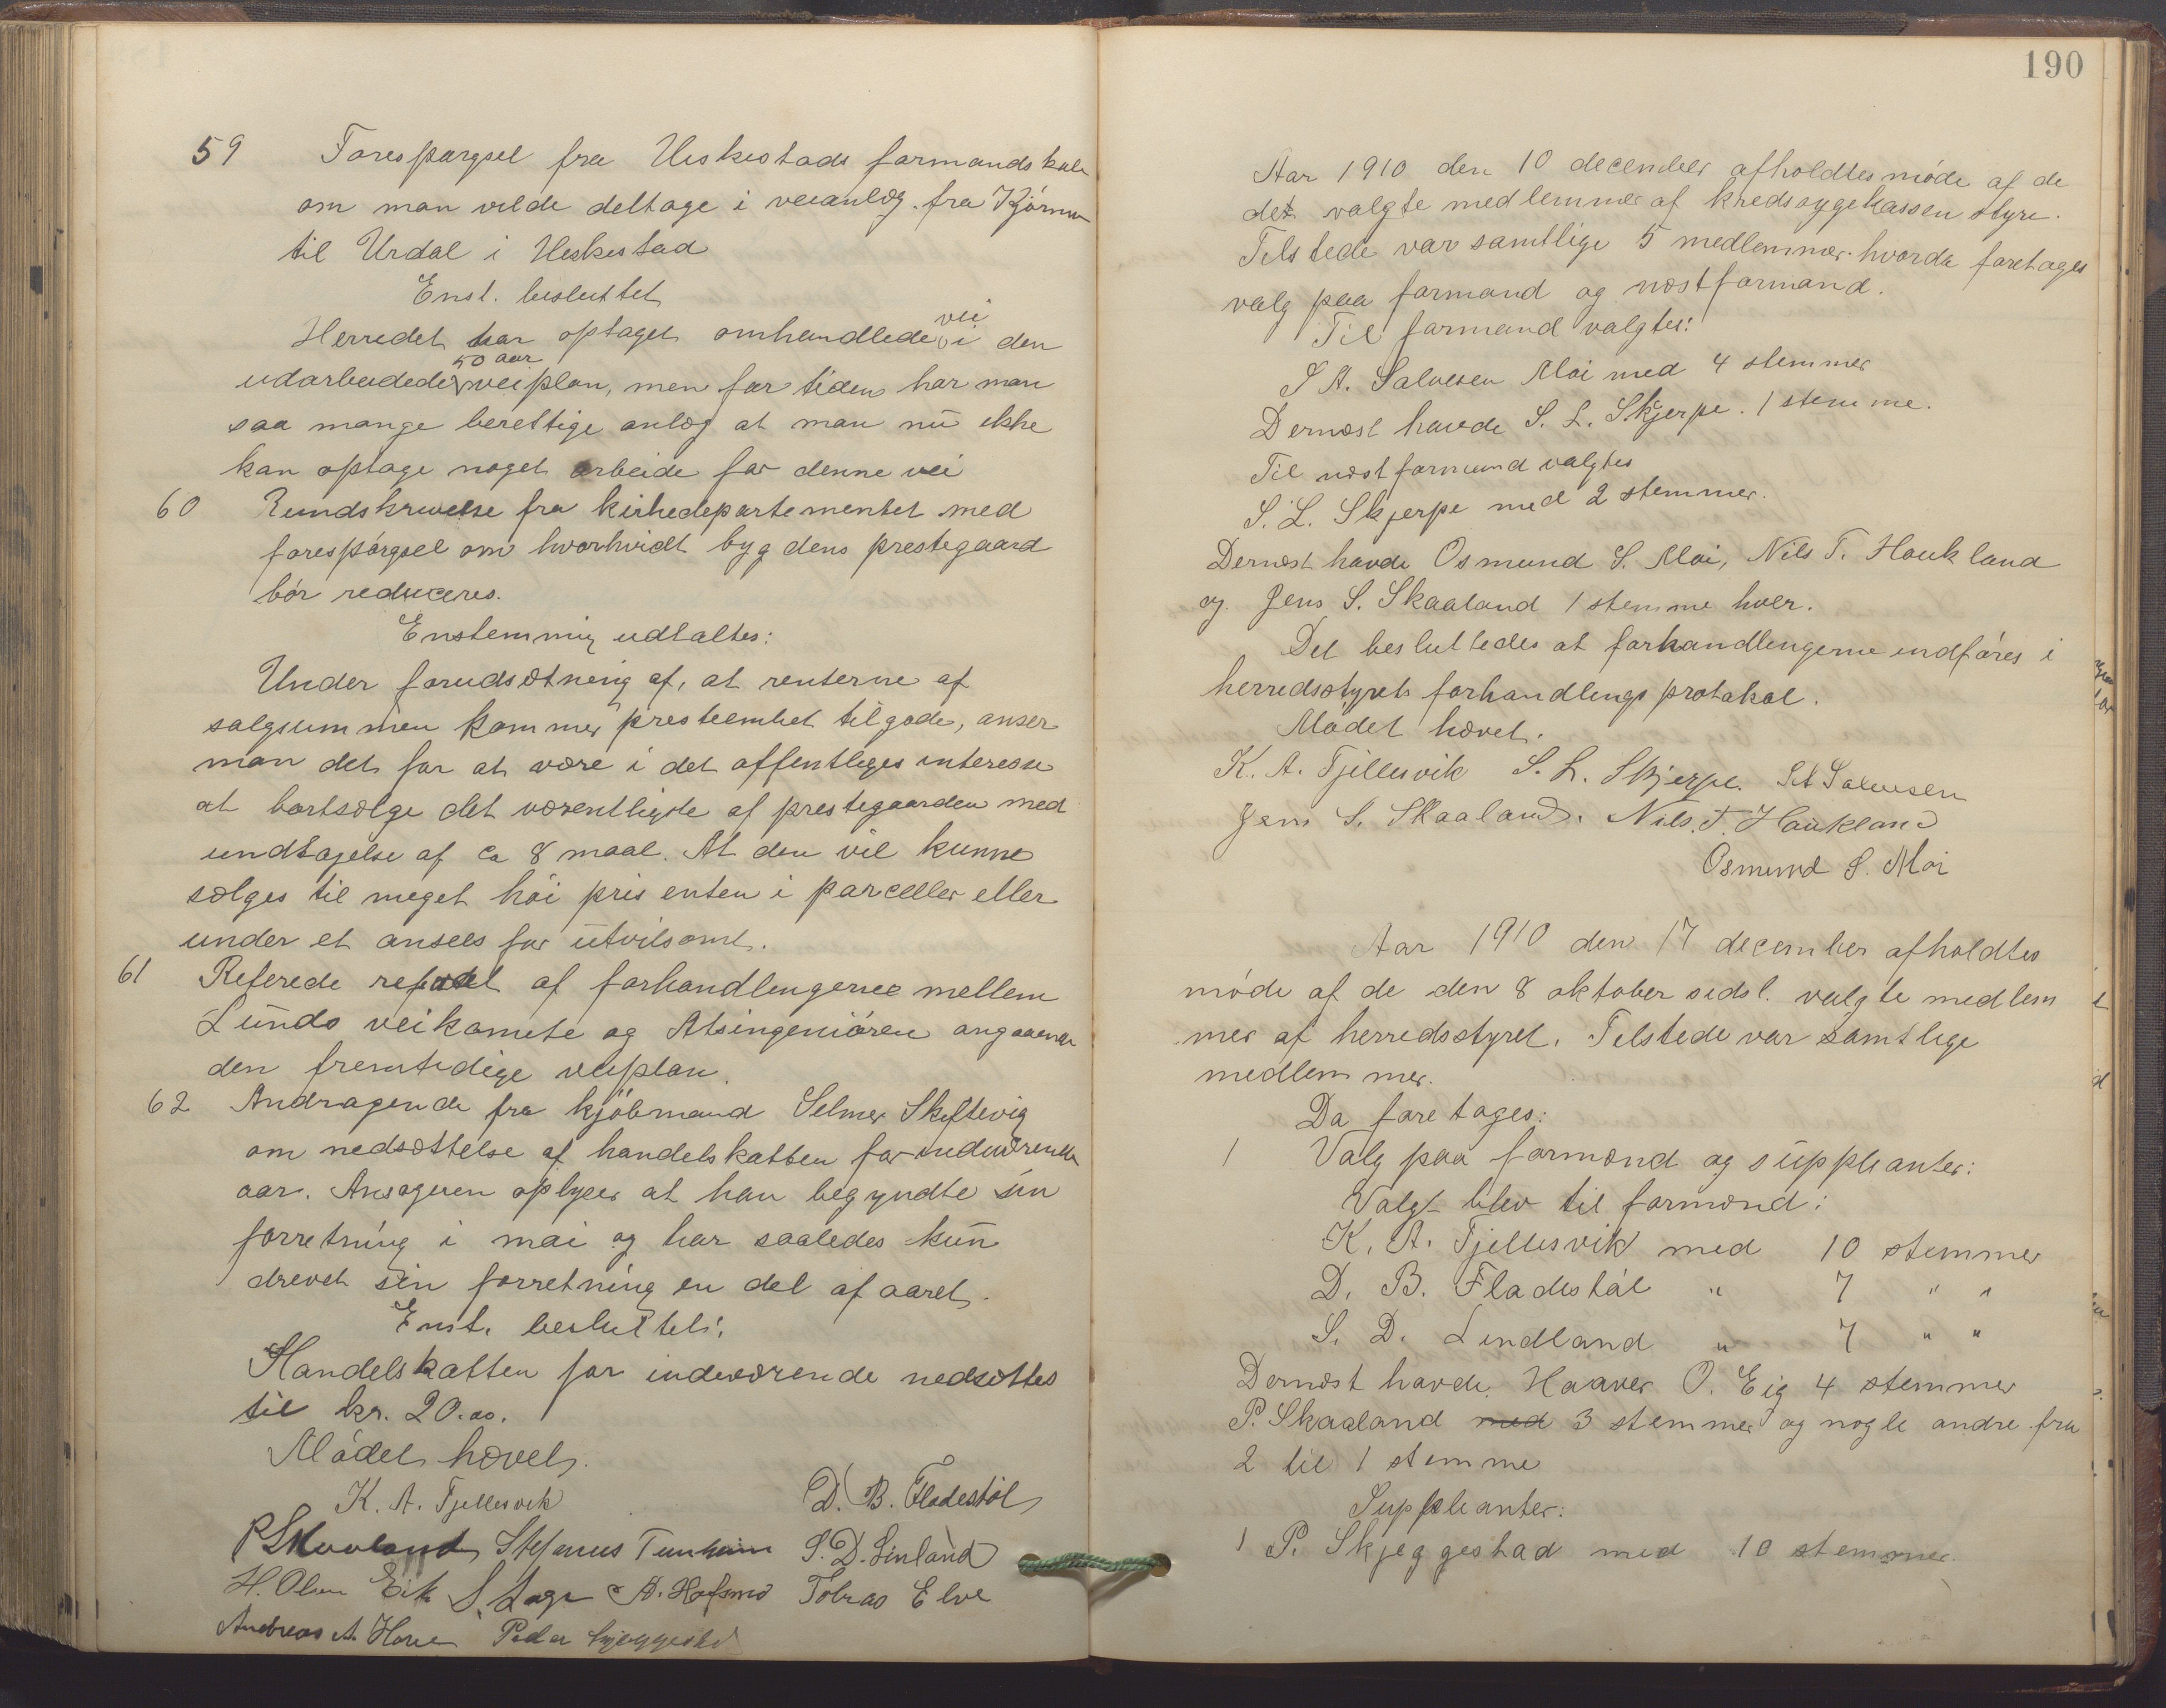 59 Forespørgsel fra Heskestads formandskab
om man vilde deltage i veianlæg fra Kjørmo
til Urdal i Heskestad
Enst. besluttet
Herredet har optaget omhandlede vei i den
udarbeidede 50 aar veiplan, men for tiden har man
saa mange berettige anlæg at man nu ikke
kan optage noget arbeide for denne vei
60 Rundskrivelse fra kirkedepartementet med
forespørgsel om hvorhvidt bygdens prestegaard
bør reduceres.
Enstemmig udtaltes:
Under forudsætning af, at renterne af
salgsummen kommer presteembet tilgode, anser
man det for at være i det offentliges interesse
at bortsælge det væsentligste af prestegaarden med
undtagelse af ca 8 maal. At den vil kunne
sælges til meget høi pris enten i parceller eller
under et ansees for utvilsomt.
61 Referede referat af forhandlingerne mellem
Lunds veikomite og Atsingeniøren angaaende
den fremtidige veiplan.
62 Andragende fra kjøbmand Selmer Skiftevig
om nedsættelse af handelskatten for indeværende
aar. Ansøgeren oplyser at han begyndte sin
forretning i mai og har saaledes kun
drevet sin forretning en del af aaret.
Enst. besluttet:
Handelskatten for indeværende nedsættes
til kr. 20.00.
Mødet hævet.
K. A. Fjellesvik D. B. Fladestøl
P Skaaland Stefanus Tunheim S. D. Linland
H. Olsen Eik S. Lage A. Hofsmo Tobias Elve
Andreas A. Hove Peder Skjeggestad
190
Aar 1910 den 10 december afholdtes møde af de
det valgte medlemmer af kredssygekassen styre.
Tilstede var samtlige 5 medlemmer. hvorda foretages
valg paa formand og næstformand.
Til formand valgtes:
S A. Salvesen Moi med 4 stemmer
Dernæst havde S. L. Skjerpe. 1 stemme.
Til næstformand valgtes
S. L. Skjerpe med 2 stemmer.
Dernæst havde Osmund S. Moi, Nils T. Haukland
og Jens S. Skaaland 1 stemme hver.
Det besluttedes at forhandlingerne indføres i
herredsstyrets forhandlings protokol.
Mødet hævet.
K. A. Fjellesvik S. L. Skjerpe. S A Salvesen
Jens S. Skaaland. Nils. T. Haukland
Osmund S. Moi
Aar 1910 den 17 december afholdtes
møde af de den 8 oktober sidst. valgte medlem
mer af herredsstyret. Tilstede var samtlige
medlemmer.
Da foretages:
1 Valg paa formænd og suppleanter:
Valgt blev til formænd:
K. A. Fjellesvik med 10 stemmer
D. B. Fladestøl " 7 " "
S. D. Lindland " 7 " "
Dernæst havde Haaver O. Eig 4 stemmer
P. Skaaland med 3 stemmer og nogle andre fra
2 til 1 stemme
Suppleanter:
1 P. Skjeggestad med 10 stemmer